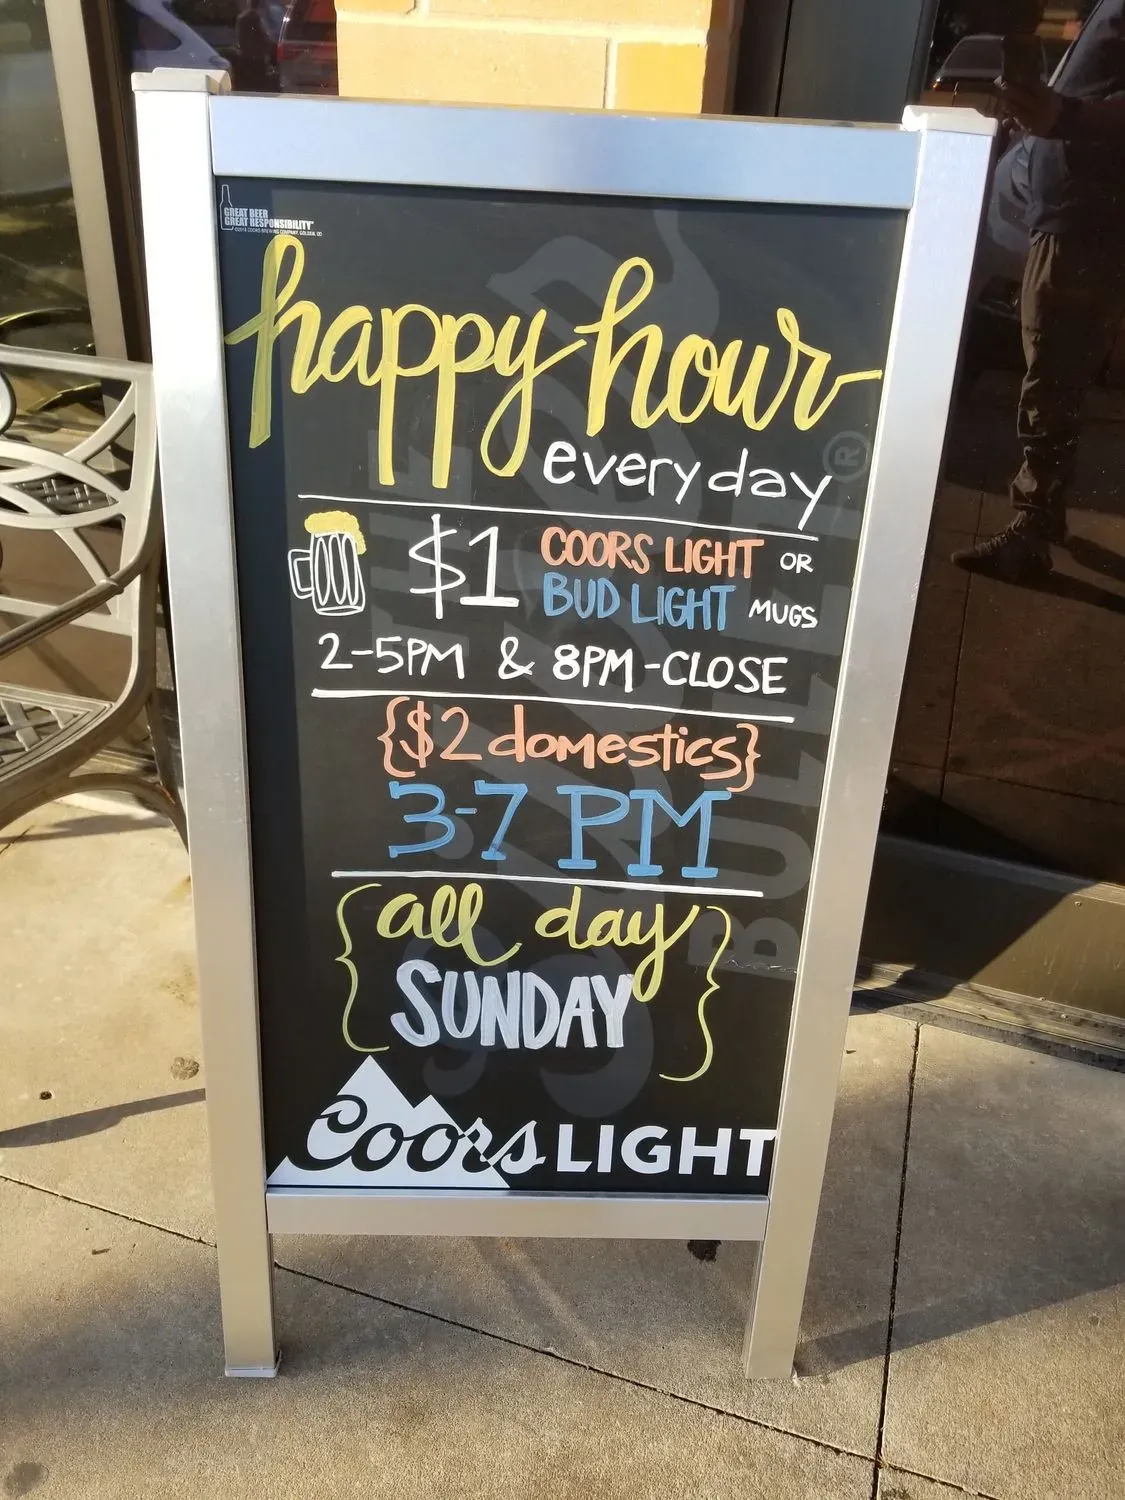 GREAT BEER
GREAT RESPONSIBILITY
happy hour
everyday
$1 COORS LIGHT OR
BUD LIGHT MUGS
2-5PM & 8PM-CLOSE
{$2 domestics}
3-7 PM
{all day
SUNDAY}
Coors LIGHT
THE
Silver
BULLET®